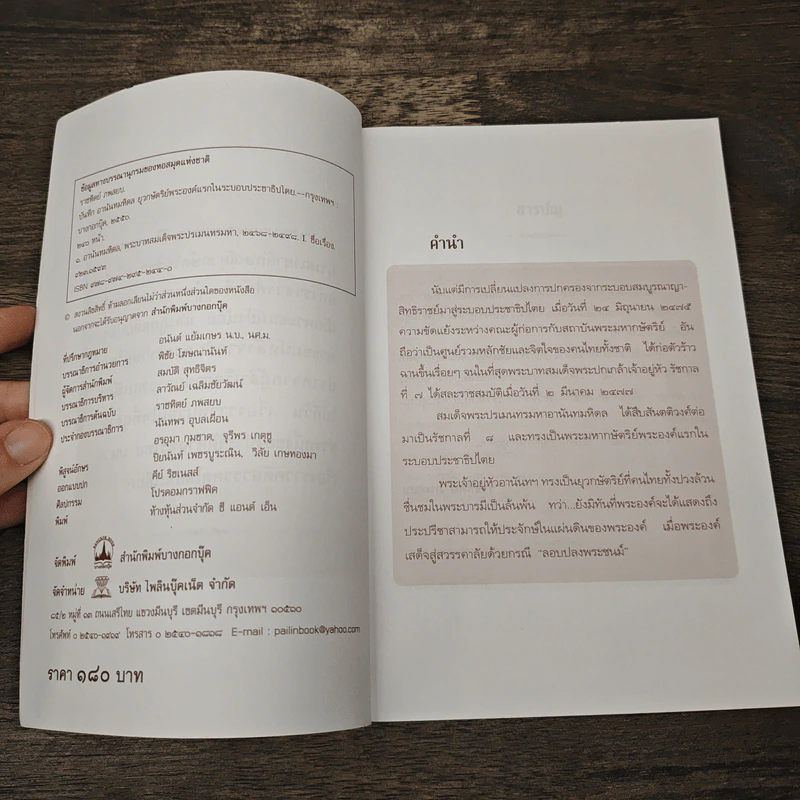 ข้อมูลทางบรรณานุกรมของหอสมุดแห่งชาติ
ราชทิตย์ ภพสยบ.
บันทึก อานันทมหิดล ยุวกษัตริย์พระองค์แรกในระบอบประชาธิปไตย.--กรุงเทพฯ :
บางกอกบุ๊ค, ๒๕๕๐.
๒๔๐ หน้า.
๑. อานันทมหิดล, พระบาทสมเด็จพระปรเมนทรมหา, ๒๔๖๘-๒๔๘๙. I. ชื่อเรื่อง.
๙๒๓.๑๕๙๓
ISBN ๙๗๘-๙๗๔-๒๙๕-๒๔๔-๐
© สงวนลิขสิทธิ์ ห้ามลอกเลียนไม่ว่าส่วนหนึ่งส่วนใดของหนังสือ
นอกจากจะได้รับอนุญาตจาก สำนักพิมพ์บางกอกบุ๊ค
ที่ปรึกษากฎหมาย อนันต์ แย้มเกษร น.บ., นศ.ม.
บรรณาธิการอำนวยการ พิชัย โฆษณานันท์
ผู้จัดการสำนักพิมพ์ สมบัติ สุทธิจิตร
บรรณาธิการบริหาร ลาวัณย์ เฉลิมชัยวัฒน์
บรรณาธิการต้นฉบับ ราชทิตย์ ภพสยบ
ประจำกองบรรณาธิการ นันทพร อุบลเผื่อน
อรอุมา กุมชาด, จุรีพร เกตุชู
พิสูจน์อักษร ปิยนันท์ เพชรบูระณิน, วิลัย เกษทองมา
ออกแบบปก คีย์ รีชเนสส์
ศิลปกรรม โปรคอมกราฟฟิค
พิมพ์ ห้างหุ้นส่วนจำกัด ซี แอนด์ เอ็น
จัดพิมพ์ สำนักพิมพ์บางกอกบุ๊ค
จัดจำหน่าย บริษัท ไพลินบุ๊คเน็ต จำกัด
๘๕/๒ หมู่ที่ ๑๓ ถนนเสรีไทย แขวงมีนบุรี เขตมีนบุรี กรุงเทพฯ ๑๐๕๑๐
โทรศัพท์ ๐ ๒๕๔๐-๑๙๑๙ โทรสาร ๐ ๒๕๔๐-๑๘๑๘ E-mail : pailinbook@yahoo.com
ราคา ๑๘๐ บาท
คำนำ
นับแต่มีการเปลี่ยนแปลงการปกครองจากระบอบสมบูรณาญา-
สิทธิราชย์มาสู่ระบอบประชาธิปไตย เมื่อวันที่ ๒๔ มิถุนายน ๒๔๗๕
ความขัดแย้งระหว่างคณะผู้ก่อการกับสถาบันพระมหากษัตริย์ อัน
ถือว่าเป็นศูนย์รวมหลักชัยและจิตใจของคนไทยทั้งชาติ ได้ก่อตัวร้าว
ฉานขึ้นเรื่อยๆ จนในที่สุดพระบาทสมเด็จพระปกเกล้าเจ้าอยู่หัว รัชกาล
ที่ ๗ ได้สละราชสมบัติเมื่อวันที่ ๒ มีนาคม ๒๔๗๗
สมเด็จพระปรเมนทรมหาอานันทมหิดล ได้สืบสันตติวงศ์ต่อ
มาเป็นรัชกาลที่ ๘ และทรงเป็นพระมหากษัตริย์พระองค์แรกใน
ระบอบประชาธิปไตย
พระเจ้าอยู่หัวอานันทฯ ทรงเป็นยุวกษัตริย์ที่คนไทยทั้งปวงล้วน
ชื่นชมในพระบารมีเป็นล้นพ้น ทว่า...ยังมิทันที่พระองค์จะได้แสดงถึง
ประปรีชาสามารถให้ประจักษ์ในแผ่นดินของพระองค์ เมื่อพระองค์
เสด็จสู่สวรรคาลัยด้วยกรณี "ลอบปลงพระชนม์"